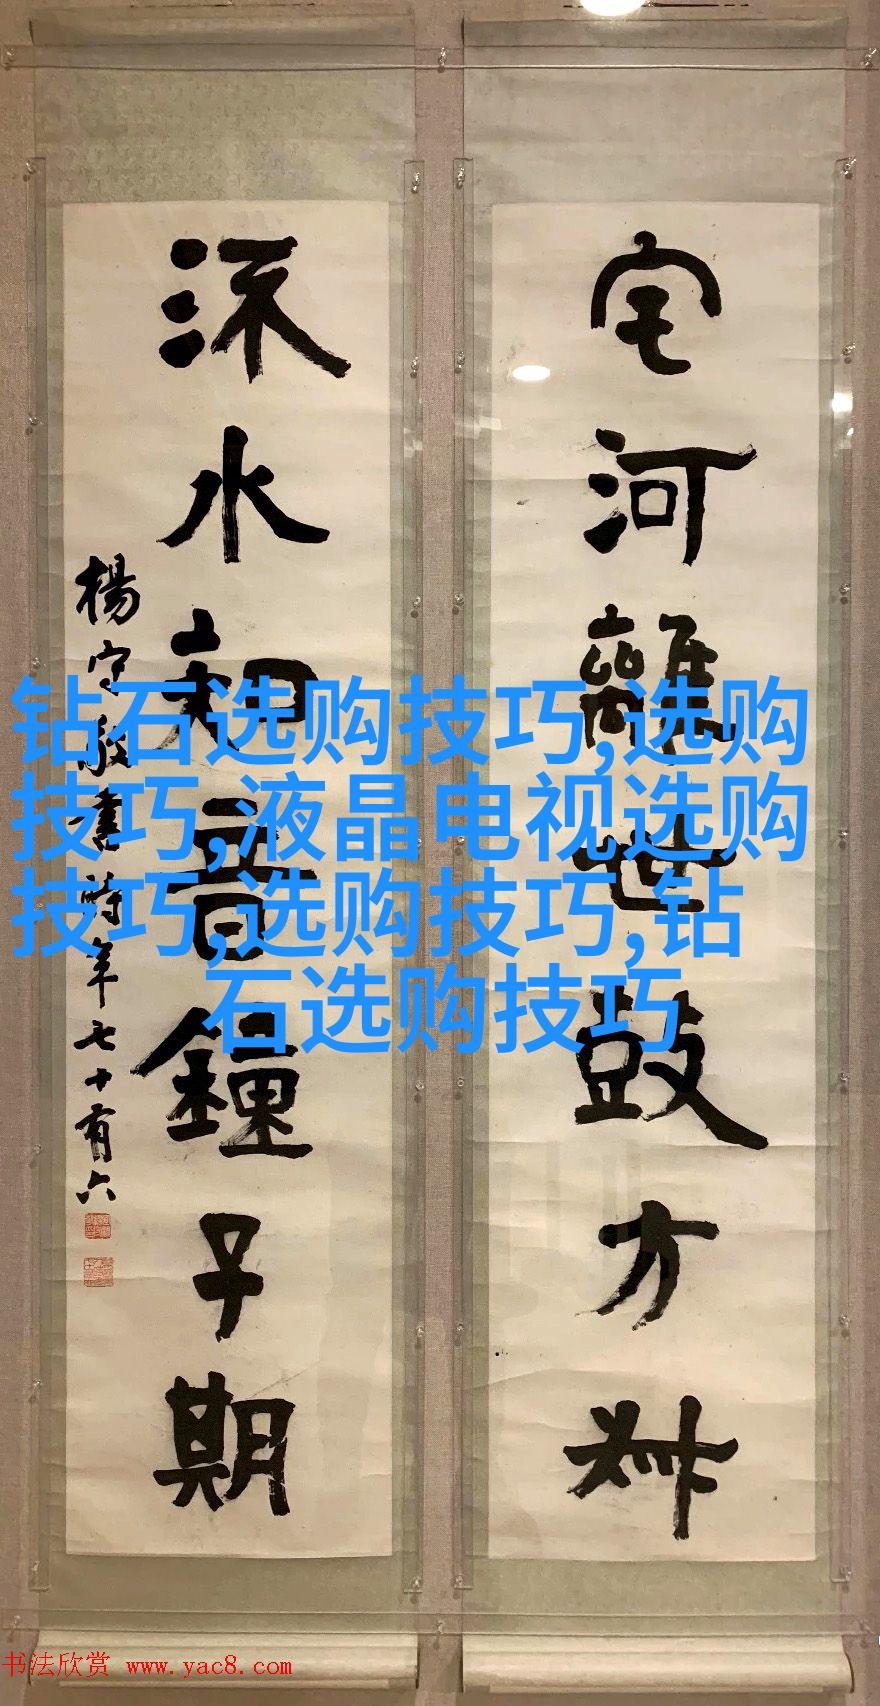 宅河離世鼓方叔
流水知音鐘子期
楊守敬書時年七十有六
钻石选购技巧,选购
技巧,液晶电视选购
技巧,选购技巧,钻
石选购技巧
书法欣赏 www.yac8.com